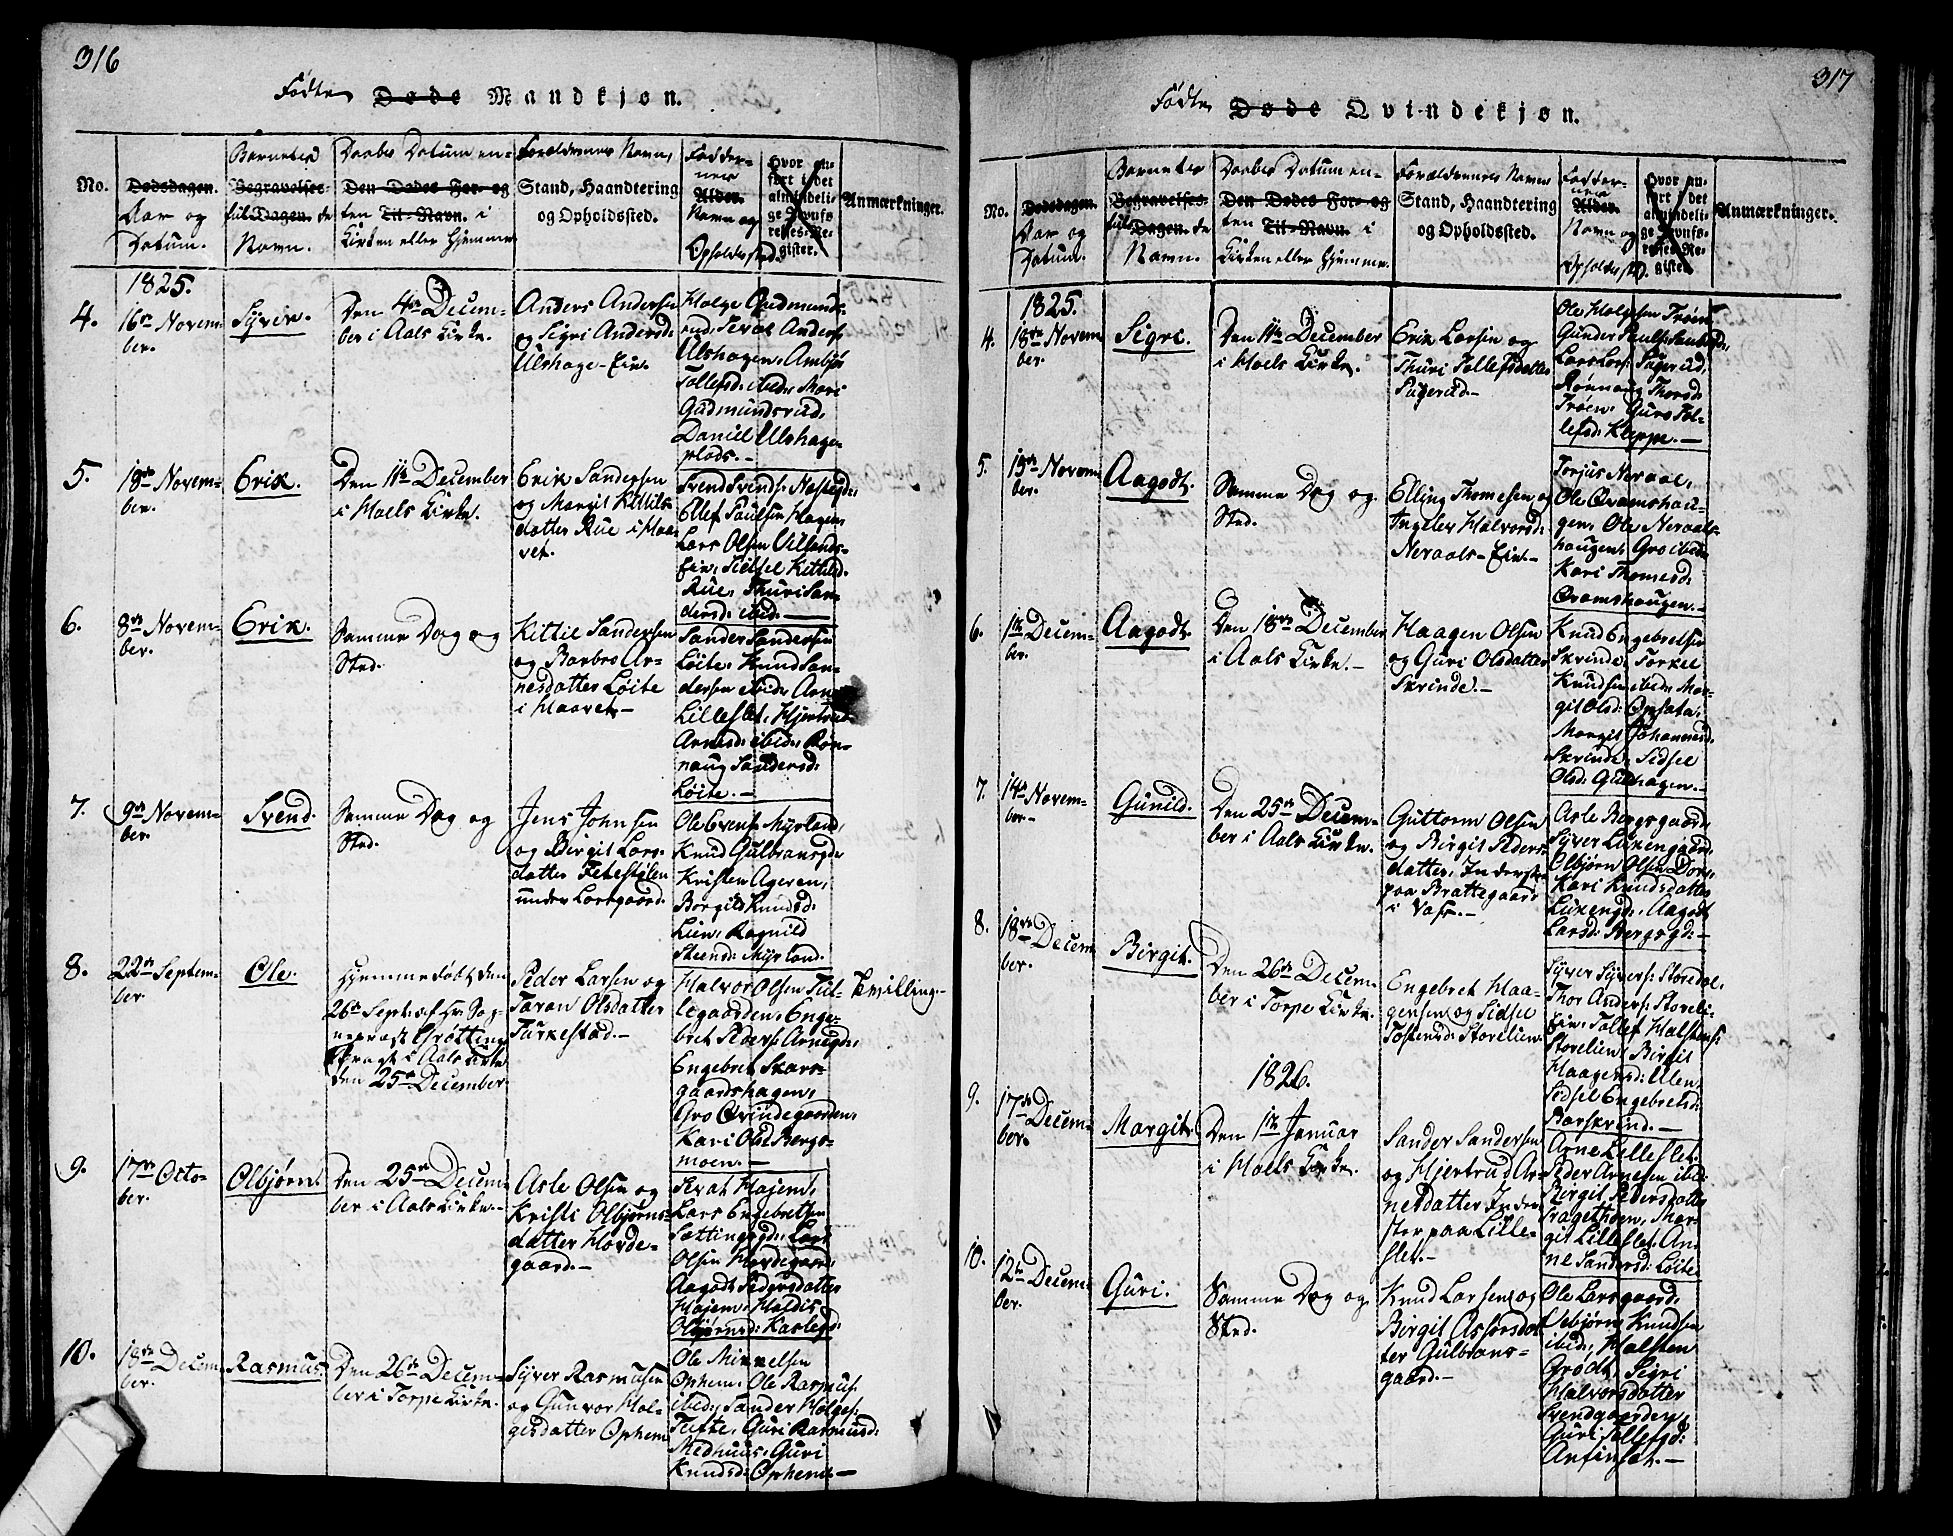 316
Fødte Døde Mandkjøn.
No.
Dødsdagen.
Aar og
Datum.
Barnets
Begravelses-
Dagen. de
Navn.
Daabs Datum en-
Den Dødes For- og
ten Til-Navn. i
Kirken eller Hjemme
Forældrenes Navn,
Stand, Haandtering
og Opholdssted.
Fadder-
nes
Alder.
Navn og
Opholdssted.
Hvor an-
ført i det
almindeli-
ge Jevnfø-
relses-Re-
gister.
Anmærkninger.
1825.
4.
16de Novem-
ber.
Syver.
Den 4de Decem-
ber i Aals Kirke.
Anders Andersen
og Sigri Andersd:
Ulshage-Eie.
Helge Gudmunds-
rud, Sevat Anders:
Ulshagen, Ambjør
Tollefsd: ibid: Mari
Gudmundsrud,
Daniel Ulshage-
plads.-
5.
18de Novem-
ber.
Erik.
Den 11te December
i Hoels Kirke.
Erik Sandersen
og Margit Kittils-
datter Rue i Haa-
vet.
Svend Svends:
Ellef Paulsen Hagen,
Lars Olsen Villands-
Eie, Sidsel Kittilsd:
Rue, Thuri San-
dersd: ibid.-
6.
8de Novem-
ber.
Erik.
Samme Dag og
Sted.
Kittil Sandersen
og Barbro Ar-
nesdatter Løite
i Haavet.-
Sander Sandersen
Løite, Knud San-
dersen ibid: Arne
Lilleslet, Hjertrud
Arnesd: ibid: Røn-
naug Sandersd:
Løite.-
7.
9de Novem-
ber.
Svend.
Samme Dag og
Sted.
Jens Johnsen
og Birgit Lars-
datter Fetestølen
under Larsgaard.
Ole Evens: Myrland,
Knud Gulbransgd:
Kristen Ageren,
Borgild Knudsd:
Lien, Ragnild
Steensd: Myrland.
8.
22de Septem-
ber
Ole.
Hjemmedøbt den
26de Sept: af Hr. Sog-
nepræst Grøtting
i Aals Kirke
den 25de December
Peder Larsen og
Taran Olsdatter
Turkestad.-
Halvor Olsen Tul-
legaarden, Enge-
bret Peders: Arnegd:,
Engebret Skars-
gaardshagen,
Gro Qvindegaarden,
Kari Olsd: Bergs-
moen.-
Tvilling.-
9.
17de Octo-
ber.
Olbjørn.
Den 25de Decem-
ber i Aals Kirke.-
Asle Olsen og
Kristi Olbjørns-
datter Horde-
gaard.-
Sevat Hajem,
Lars Engebretsen
Sættingsgd: Lars
Olsen Hordegaard,
Aagodt Pedersdatter
Hajem, Haldis
Olbjørnsd: Karlsgd:
10.
18de Decem-
ber.
Rasmus.
Den 26de Decem-
ber i Torpe Kirke.
Syver Rasmusen
og Gunvor Hel-
gesdatter Ophem
Ole Mikkelsen
Ophem, Ole Rasmus:
ibid: Sander Helges:
Tufte, Guri Rasmusd:
Medhuus, Guri
Knudsd: Ophem.-
317
Fødte Døde Qvindekjøn.
No.
Dødsdagen.
Aar og
Datum.
Barnets
Begravelses-
Dagen. de
Navn.
Daabs Datum en-
Den Dødes For- og
ten Til-Navn. i
Kirken eller Hjemme.
Forældrenes Navn
Stand, Haandtering
og Opholdssted.
Fadder-
nes
Alder.
Navn og
Opholdsst.
Hvor an-
ført i det
almindeli-
ge Jevnfø-
relses-Re-
gister
Anmærkninger.
1825.
4.
18de Novem-
ber.
Sigri.
Den 11te December
i Hoels Kirke.
Erik Larsen og
Thuri Tollefsdatter
Sugerud.-
Ole Helgesen Trøen,
Gunder Pauls:
Lars Lars: Sugerud,
Rønnaug Thorsd:
Trøen, Guro Tol-
lefsd: Kleppe.-
5.
15de Novem-
ber.
Aagodt.
Samme Dag og
Sted.
Elling Thomesen og
Ingeler Halvorsd:
Neraals-Eie.-
Torjus Neraal,
Ole Qvamshau-
gen, Ole Neraals-
haugen, Gro ibid:
Kari Thomesd:
Qvamshaugen.-
6.
1te Decem-
ber.
Aagodt.
Den 18de December
i Aals Kirke.-
Haagen Olsen
og Guri Olsdatter
Skrinde.-
Knud Engebretsen
Skrinde, Torkel
Knudsen ibid: Mar-
git Olsd: Opsata,
Margit Johannesd:
Skrinde, Sidsel
Olsd: Gulhagen.-
7.
14de Novem-
ber.-
Gunild.
Den 25de Decem-
ber i Aals Kirke.
Guttorm Olsen
og Birgit Peders-
datter, Inderster
paa Brattegaard
i Vats.-
Asle Bergsgaard,
Syver Lixengaard,
Olbjørn Olsen Dor:,
Kari Knudsdatter
Lixengd:, Aagodt
Larsd: Bergsgd:-
8.
18de Decem-
ber.
Birgit.
Den 26de Decem-
ber i Torpe Kirke.
Engebret Haa-
gensen og Sidsel
Tostensd: Storelien.
Syver Syvers: Storedal,
Thor Anders: Storeli-
Eie, Tollef Halstens:
Storelien, Birgit
Haagensd: Ulen,
Sidsel Engebretsd:
Barskrind.-
1826.
9.
17de Decem-
ber.
Margit.
Den 1te Januar
i Hoels Kirke.
Sander Sandersen
og Hjertrud Ar-
nesdatter Inder-
ster paa Lille-
slet.-
Arne Lilleslet,
Peder Arnesen ibid:
Birgit Pedersdatter
Tragethoen, Mar-
git Lilleslet, An-
ne Sandersd: Løite.
10.
12te Decem-
ber.
Guri.
Samme Dag og
Sted.
Knud Larsen og
Birgit Assorsdat-
ter Gulbrans-
gaard.-
Ole Larsgaard,
Asbjørn Knudsen
ibid:, Halsten
Grodt, Sigri
Halvorsdatter
Svendgaarden,
Guri Tollefsd:
Anfinset.-